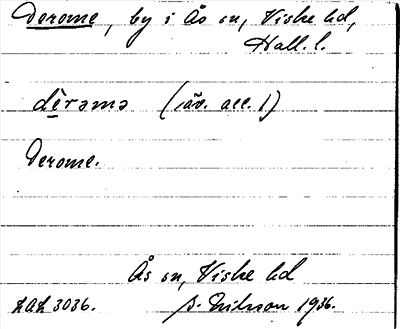 Derome, by i Ås sn, Viske hd,
Hall. l.
dèrəmə (äv. acc. 1)
Derome.
Ås sn, Viske hd
LAL 3036. Eriksson 1936.